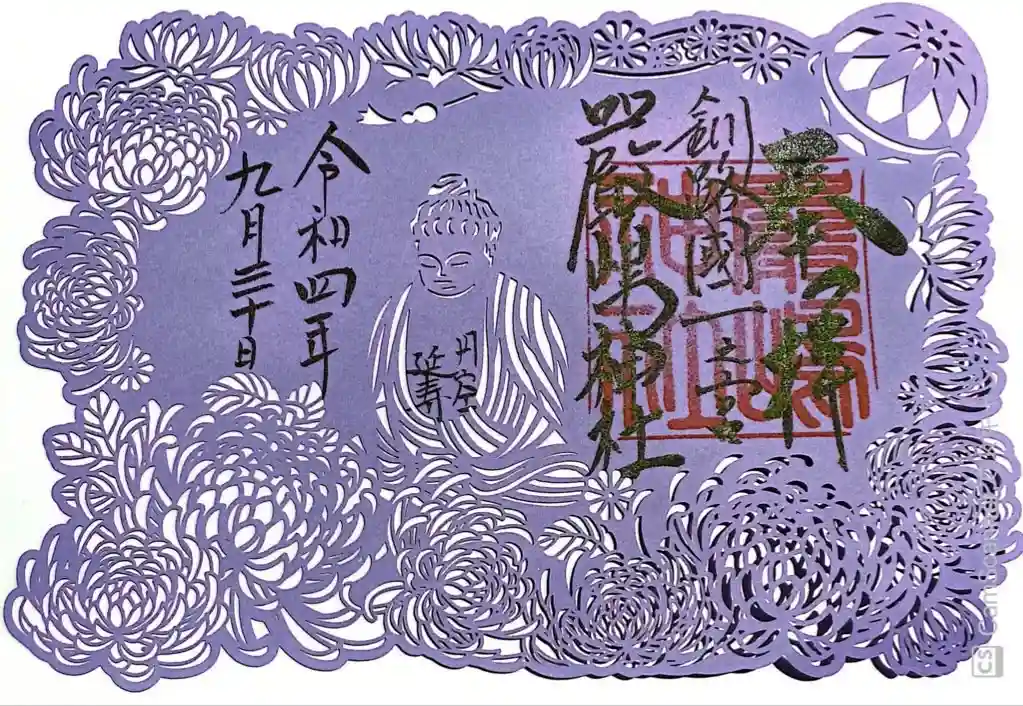 奉拝
釧路國一之宮
厳島神社
円空
延寿
令和四年
九月三十日
CS CamScanner